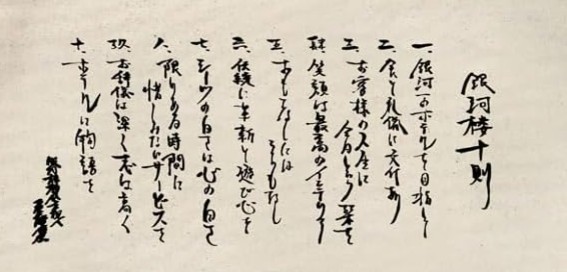 銀河楼十則
一、銀河一のホテルを目指して
二、食と礼儀に文付あり
三、お客様の人生に
今日という栞を
肆、笑顔は最高のインテリア
五、おもてなしには
そらもなし
六、伝統に革新と遊び心を
七、シーツの白さは心の白さ
八、限りある時間に
惜しみないサービスを
玖、お辞儀は深く志は高く
十、ホテルに物語を